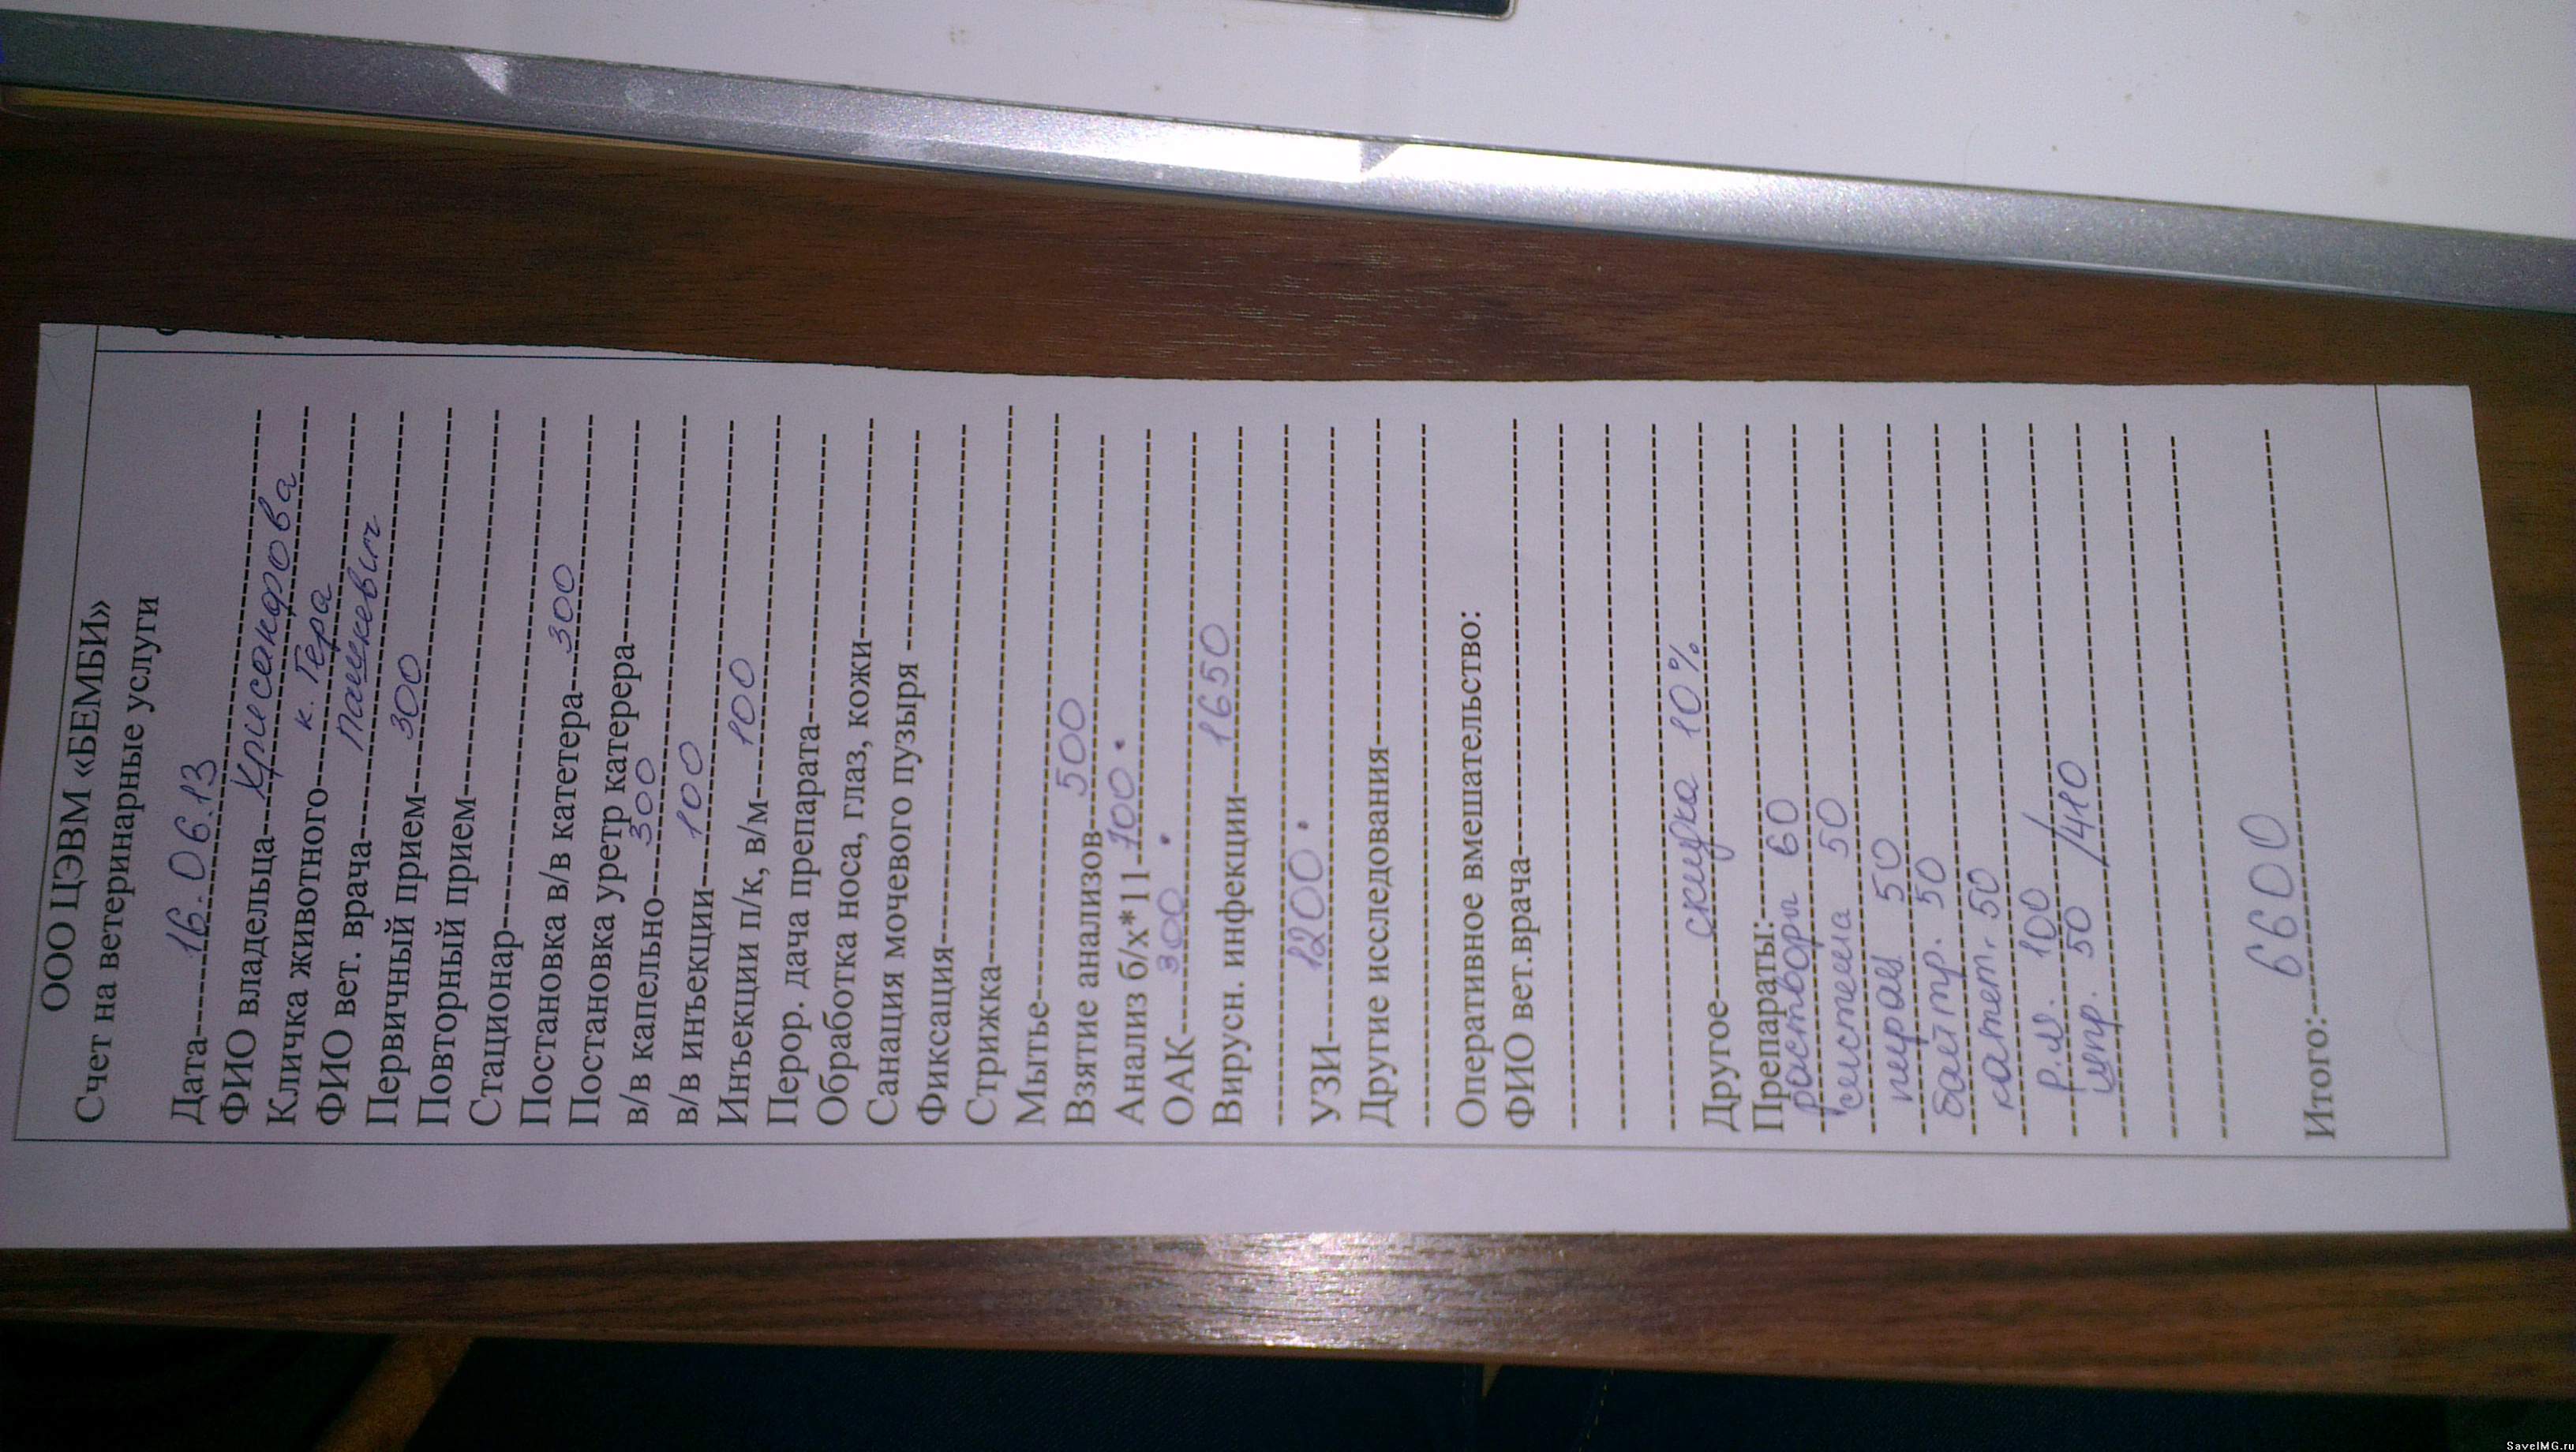 ООО ЦЭВМ «БЕМБИ»
Счет на ветеринарные услуги
Дата 16.06.13
ФИО владельца Хрисандрова
Кличка животного к. Гера
ФИО вет. врача Пашкевич
Первичный прием 300
Повторный прием
Стационар
Постановка в/в катетера 300
Постановка уретр катерера
в/в капельно 300
в/в инъекции 100
Инъекции п/к, в/м 100
Перор. дача препарата
Обработка носа, глаз, кожи
Санация мочевого пузыря
Фиксация
Стрижка
Мытье
Взятие анализов 500
Анализ б/х*11
ОАК 300.
Вирусн. инфекции 1650
УЗИ 1200.
Другие исследования
Оперативное вмешательство:
ФИО вет.врача
Другое скидка 10%
Препараты:
растворы 60
система 50
50
байтр. 50
катет. 50
р.л. 100
50 /410
Итого: 6600
SaveIMG.ru